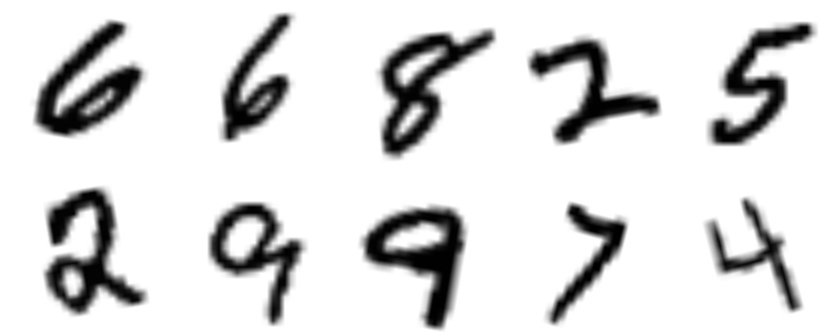 6 6 8 2 5
2 9 9 7 4